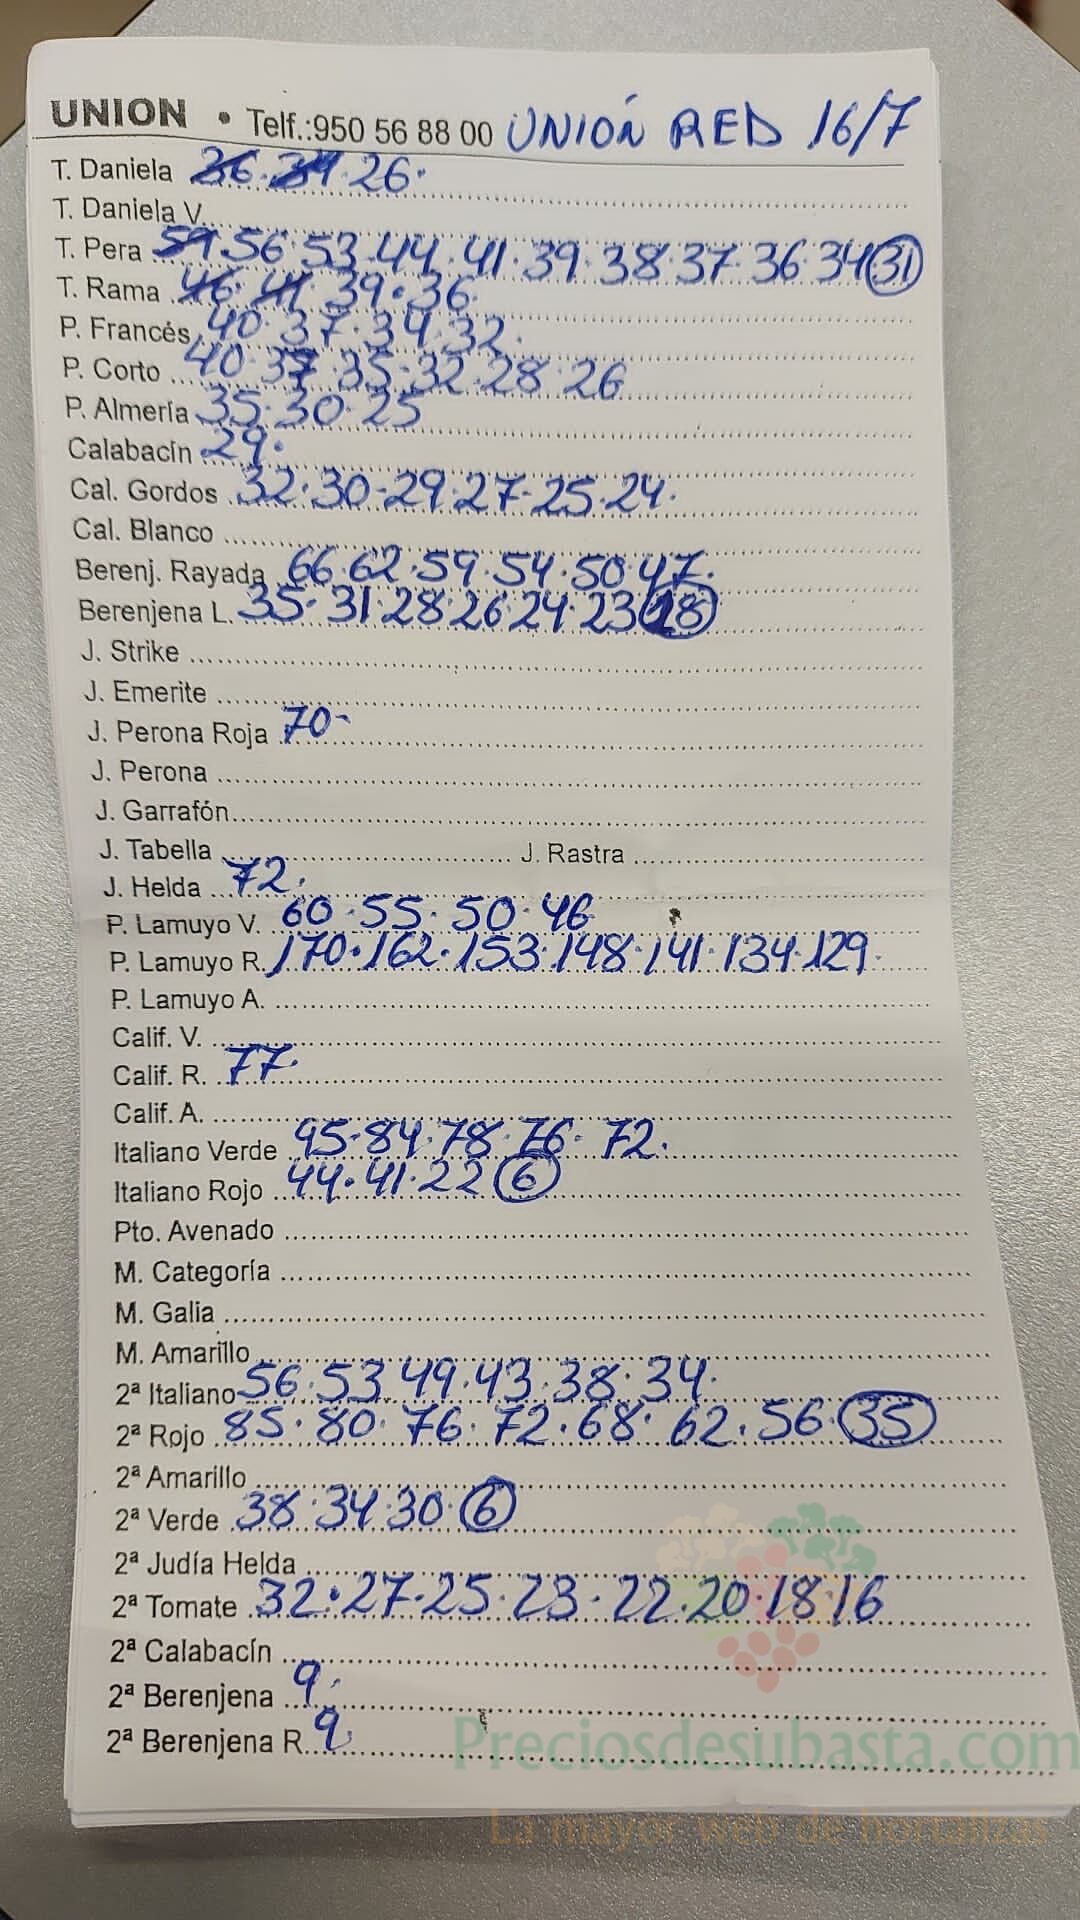 UNION • Telf.:950 56 88 00 UNIÓN RED 16/7
T. Daniela 36. 34. 26.
T. Daniela V.
T. Pera 59 56 53. 44. 41. 39. 38. 37. 36. 34 31
T. Rama 46. 41 39. 36.
P. Francés 40. 37. 34. 32.
P. Corto 40. 37. 35. 32. 28. 26
P. Almería 35. 30. 25
Calabacín 29.
Cal. Gordos 32. 30. 29. 27. 25. 24.
Cal. Blanco
Berenj. Rayada 66. 62. 59. 54. 50. 47.
Berenjena L. 35. 31. 28. 26. 24. 23 18
J. Strike
J. Emerite
J. Perona Roja 70-
J. Perona
J. Garrafón
J. Tabella J. Rastra
J. Helda 72.
P. Lamuyo V. 60. 55. 50. 46
P. Lamuyo R. 170. 162. 153. 148. 141. 134. 129.
P. Lamuyo A.
Calif. V.
Calif. R. 77.
Calif. A.
Italiano Verde 95. 84. 78. 76. 72.
Italiano Rojo 44. 41. 22 6
Pto. Avenado
M. Categoría
M. Galia
M. Amarillo
2ª Italiano 56. 53 49. 43. 38. 34.
2ª Rojo 85. 80. 76. 72. 68. 62. 56. 35
2ª Amarillo
2ª Verde 38. 34. 30. 6
2ª Judía Helda
2ª Tomate 32. 27. 25. 23. 22. 20. 18. 16
2ª Calabacín
2ª Berenjena 9.
2ª Berenjena R. 9.
Preciosdesubasta.com
La mayor web de hortalizas